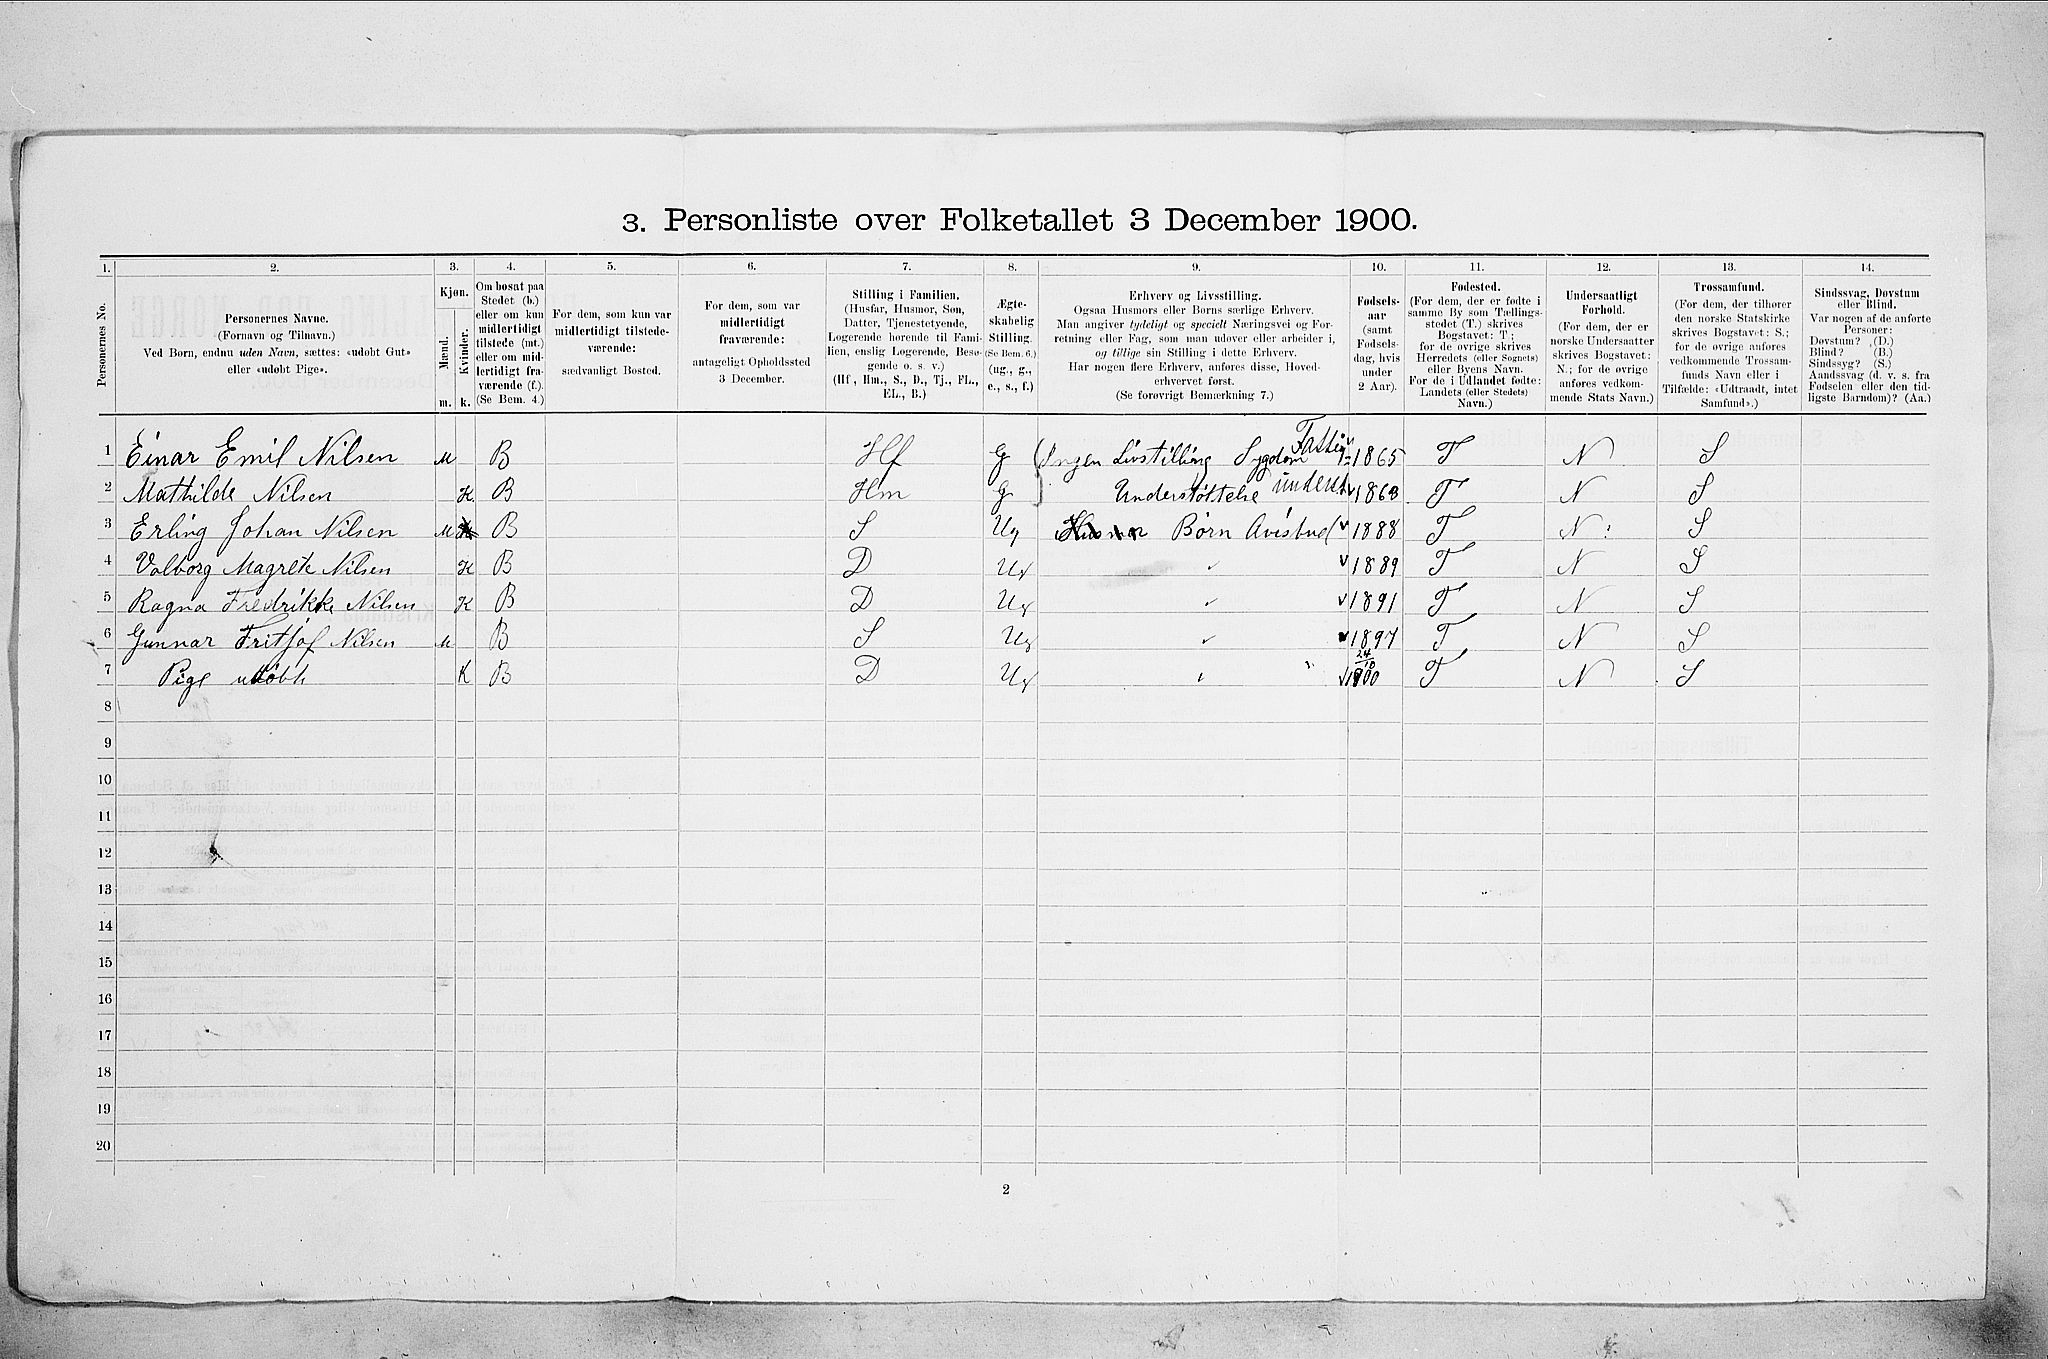 3. Personliste over Folketallet 3 December 1900.
1. 2. 3. 4. 5. 6. 7. 8. 9. 10. 11. 12. 13. 14.
Personernes No.
Personernes Navne.
(Fornavn og Tilnavn.)
Ved Børn, endnu uden Navn, sættes: «udøbt Gut»
eller «udøbt Pige».
Kjøn.
Mænd.
Kvinder.
m. k.
Om bosat paa
Stedet (b.)
eller om kun
midlertidigt
tilstede (mt.)
eller om mid-
lertidigt fra-
værende (f.)
(Se Bem. 4.)
For dem, som kun var
midlertidigt tilstede-
værende:
sædvanligt Bosted.
For dem, som var
midlertidigt
fraværende:
antageligt Opholdssted
3 December.
Stilling i Familien.
(Husfar, Husmor, Søn,
Datter, Tjenestetyende,
Logerende hørende til Fami-
lien, enslig Logerende, Besø-
gende o. s. v.)
(Hf., Hm., S., D., Tj., FL.,
EL., B.)
Ægte-
skabelig
Stilling.
(Se Bem. 6.)
(ug., g.,
e., s., f.)
Erhverv og Livsstilling.
Ogsaa Husmors eller Børns særlige Erhverv.
Man angiver tydeligt og specielt Næringsvei og For-
retning eller Fag, som man udover eller arbeider i,
og tillige sin Stilling i dette Erhverv.
Har nogen flere Erhverv, anføres disse, Hoved-
erhvervet først.
(Se forøvrigt Bemærkning 7.)
Fødsels-
aar
(samt
Fødsels-
dag, hvis
under
2 Aar).
Fødested.
(For dem, der er fødte i
samme By som Tællings-
stedet (T.) skrives
Bogstavet: T.;
for de øvrige skrives
Herredets (eller Sognets)
eller Byens Navn.
For de i Udlandet fødte:
Landets (eller Stedets)
Navn.)
Undersaatligt
Forhold.
(For dem, der er
norske Undersaatter
skrives Bogstavet:
N.; for de øvrige
anføres vedkom-
mende Stats Navn.)
Trossamfund.
(For dem, der tilhører
den norske Statskirke
skrives Bogstavet: S.;
for de øvrige anføres
vedkommende Trossam-
funds Navn eller i
Tilfælde: «Udtraadt, intet
Samfund».)
Sindssvag, Døvstum
eller Blind.
Var nogen af de anførte
Personer:
Døvstum? (D.)
Blind? (B.)
Sindssyg? (S.)
Aandssvag (d. v. s. fra
Fødselen eller den tid-
ligste Barndom)? (Aa.)
1 Einar Emil Nilsen M B Hf G Ingen Livstilling Sygdom Fattig 1865 T N S
2 Mathilde Nilsen K B Hm G Understøttelse underst. 1863 T N S
3 Erling Johan Nilsen M B S Ug Børn Avisbud 1888 T N S
4 Valborg Magrete Nilsen K B D Ug 1889 T N S
5 Ragna Fredrikke Nilsen K B D Ug 1891 T N S
6 Gunnar Fritjof Nilsen M B S Ug 1897 T N S
7 Pige udøbt K B D Ug 24/10 1900 T N S
8
9
10
11
12
13
14
15
16
17
18
19
20
2